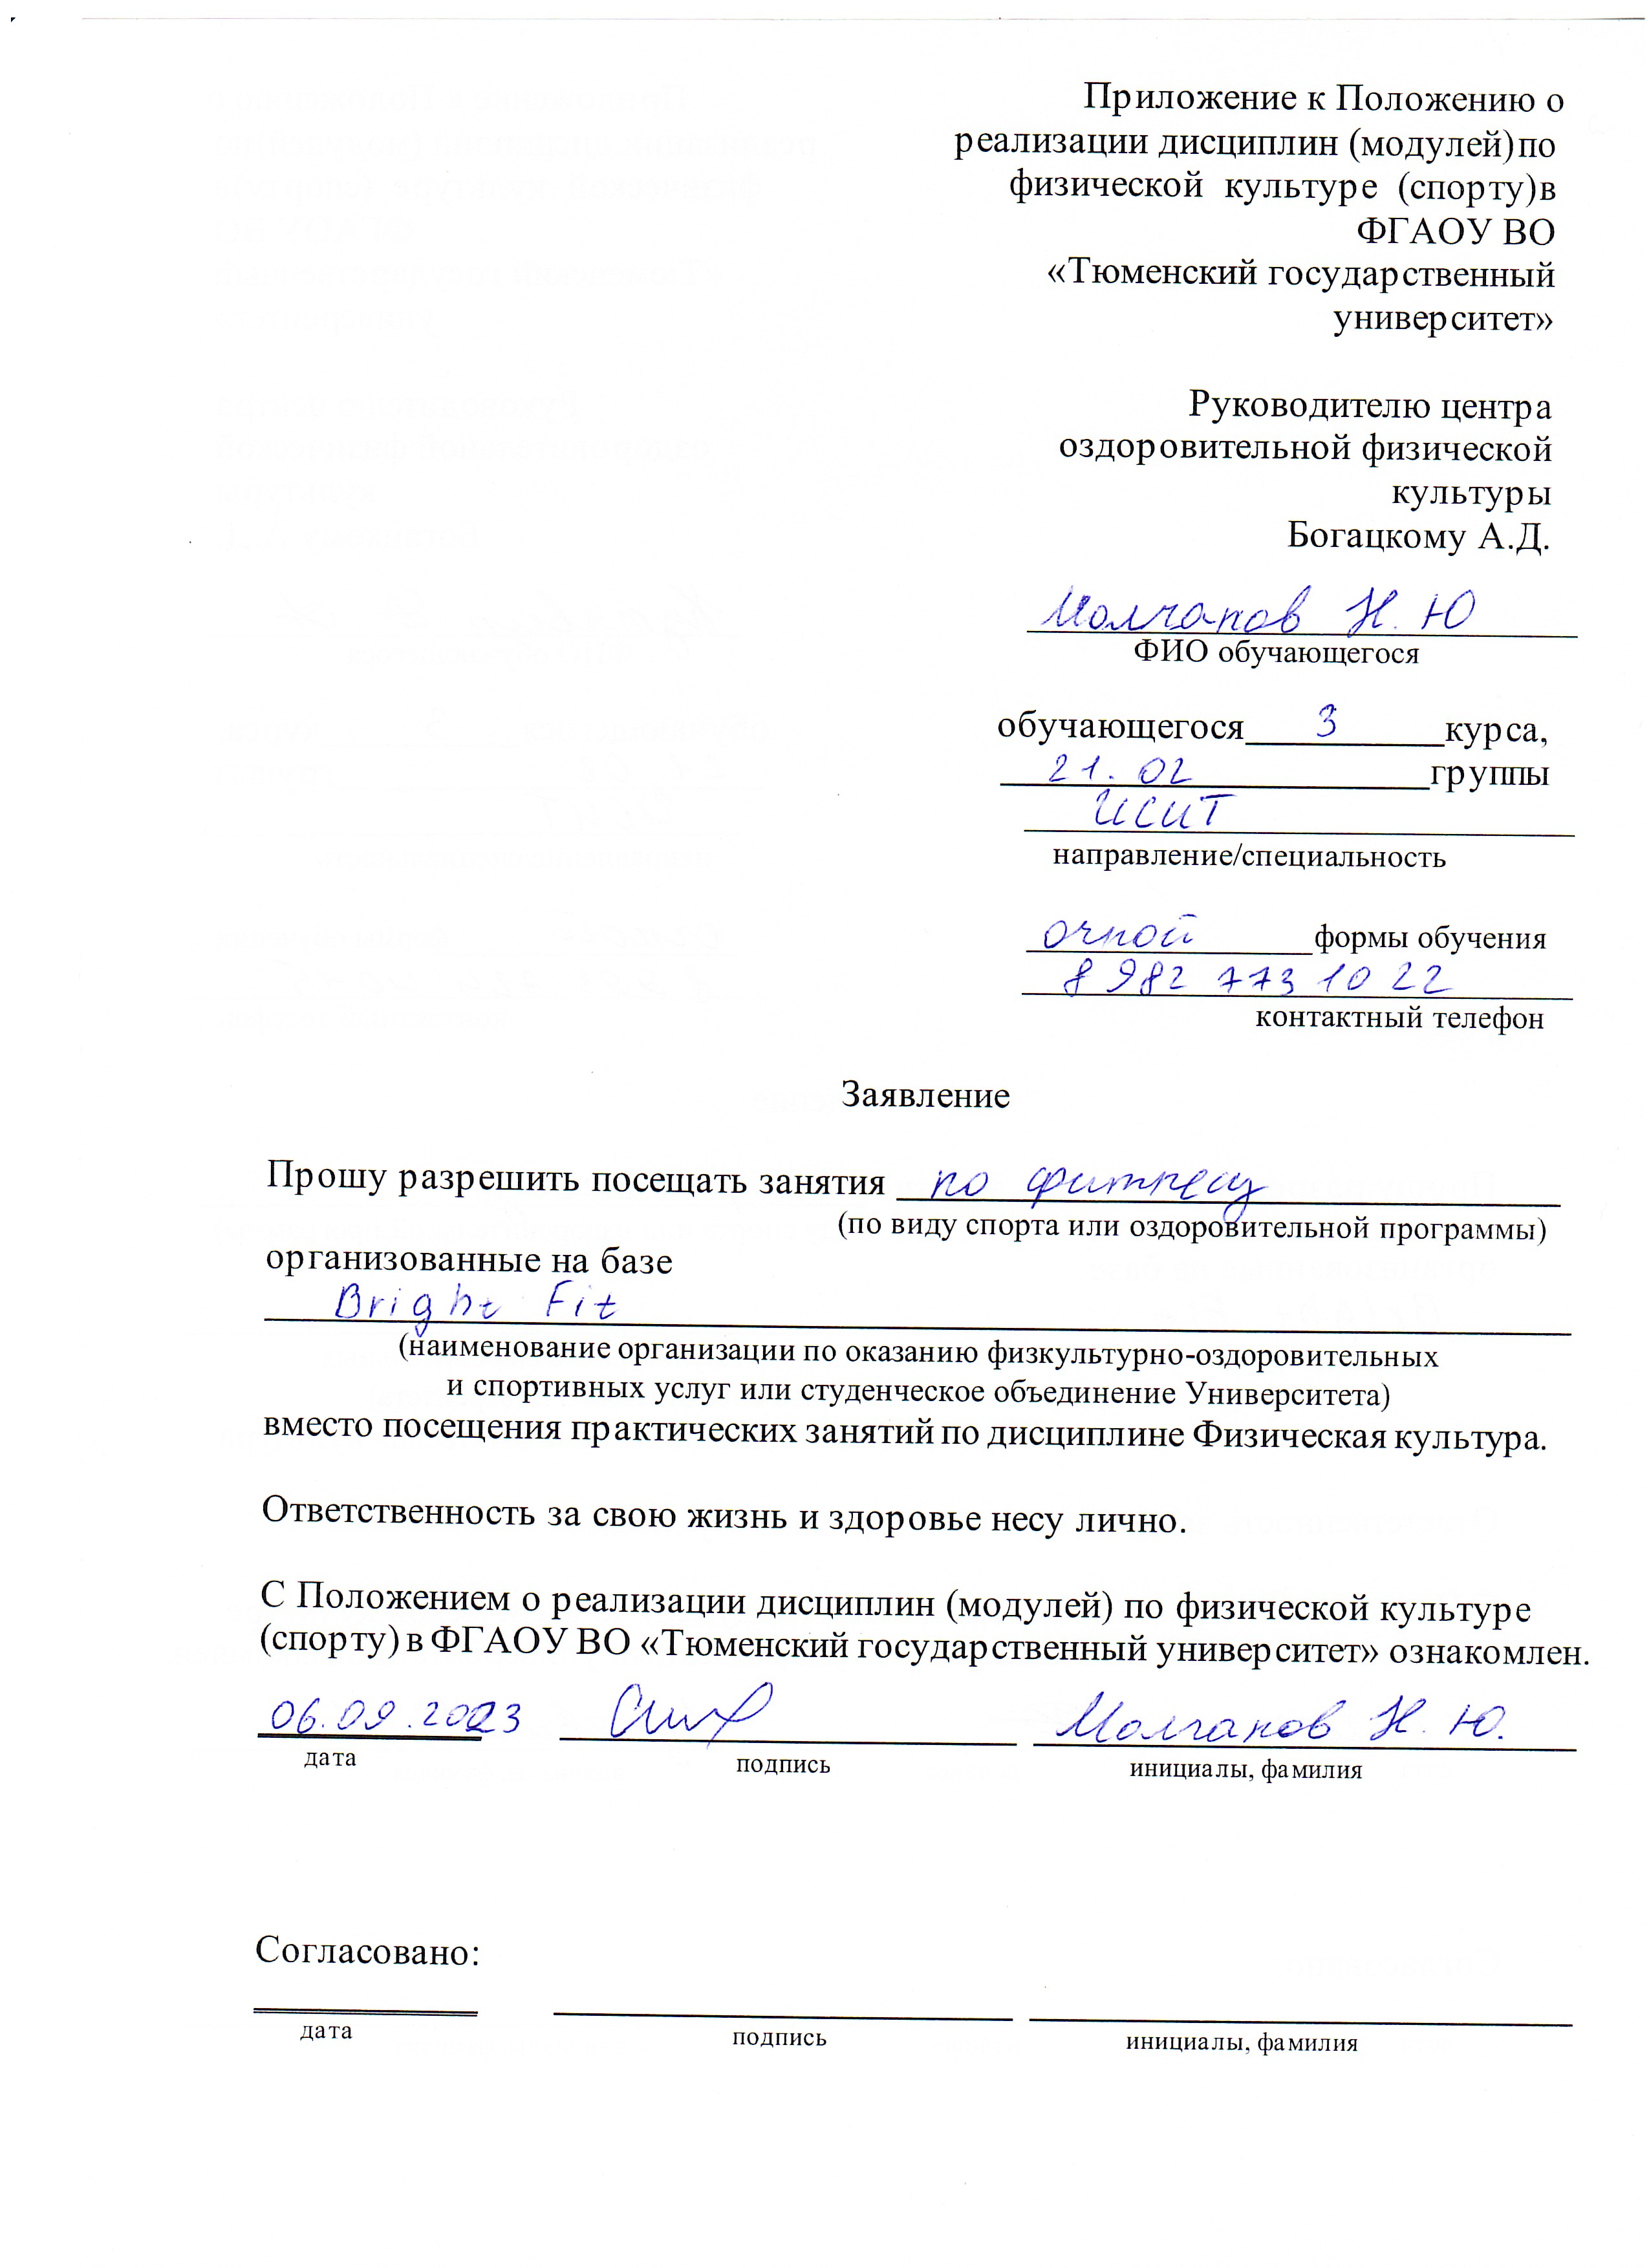 Приложение к Положению о
реализации дисциплин (модулей) по
физической культуре (спорту) в
ФГАОУ ВО
«Тюменский государственный
университет»
Руководителю центра
оздоровительной физической
культуры
Богацкому А.Д.
Молчанов Н. Ю
ФИО обучающегося
обучающегося 3 курса,
21.02 группы
ИСИТ
направление/специальность
очной формы обучения
8 982 773 10 22
контактный телефон
Заявление
Прошу разрешить посещать занятия по фитнесу
(по виду спорта или оздоровительной программы)
организованные на базе
Bright Fit
(наименование организации по оказанию физкультурно-оздоровительных
и спортивных услуг или студенческое объединение Университета)
вместо посещения практических занятий по дисциплине Физическая культура.
Ответственность за свою жизнь и здоровье несу лично.
С Положением о реализации дисциплин (модулей) по физической культуре
(спорту) в ФГАОУ ВО «Тюменский государственный университет» ознакомлен.
06.09.2023 Молчанов Н. Ю.
дата подпись инициалы, фамилия
Согласовано:
дата подпись инициалы, фамилия